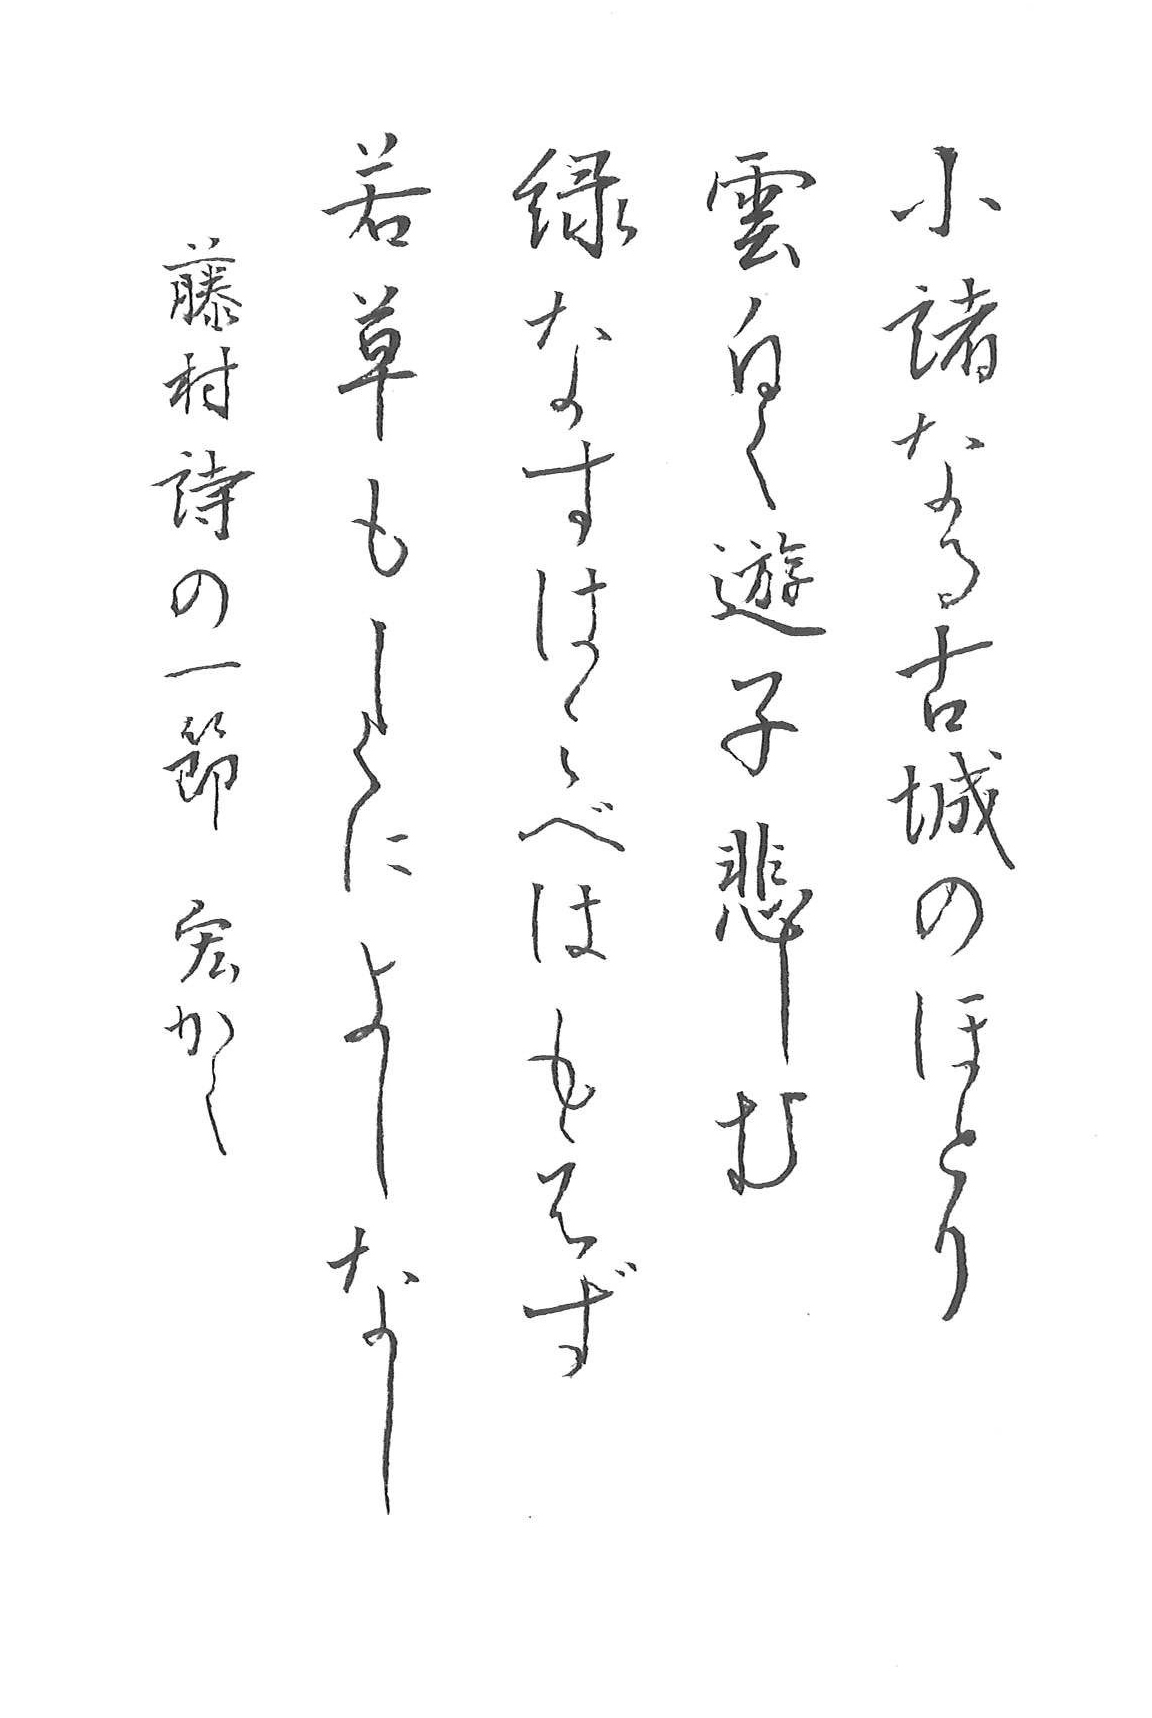 小諸なる古城のほとり
雲白く遊子悲しむ
緑なすはくべはもえず
若草もしくによしなし
藤村詩の一節 宏かく